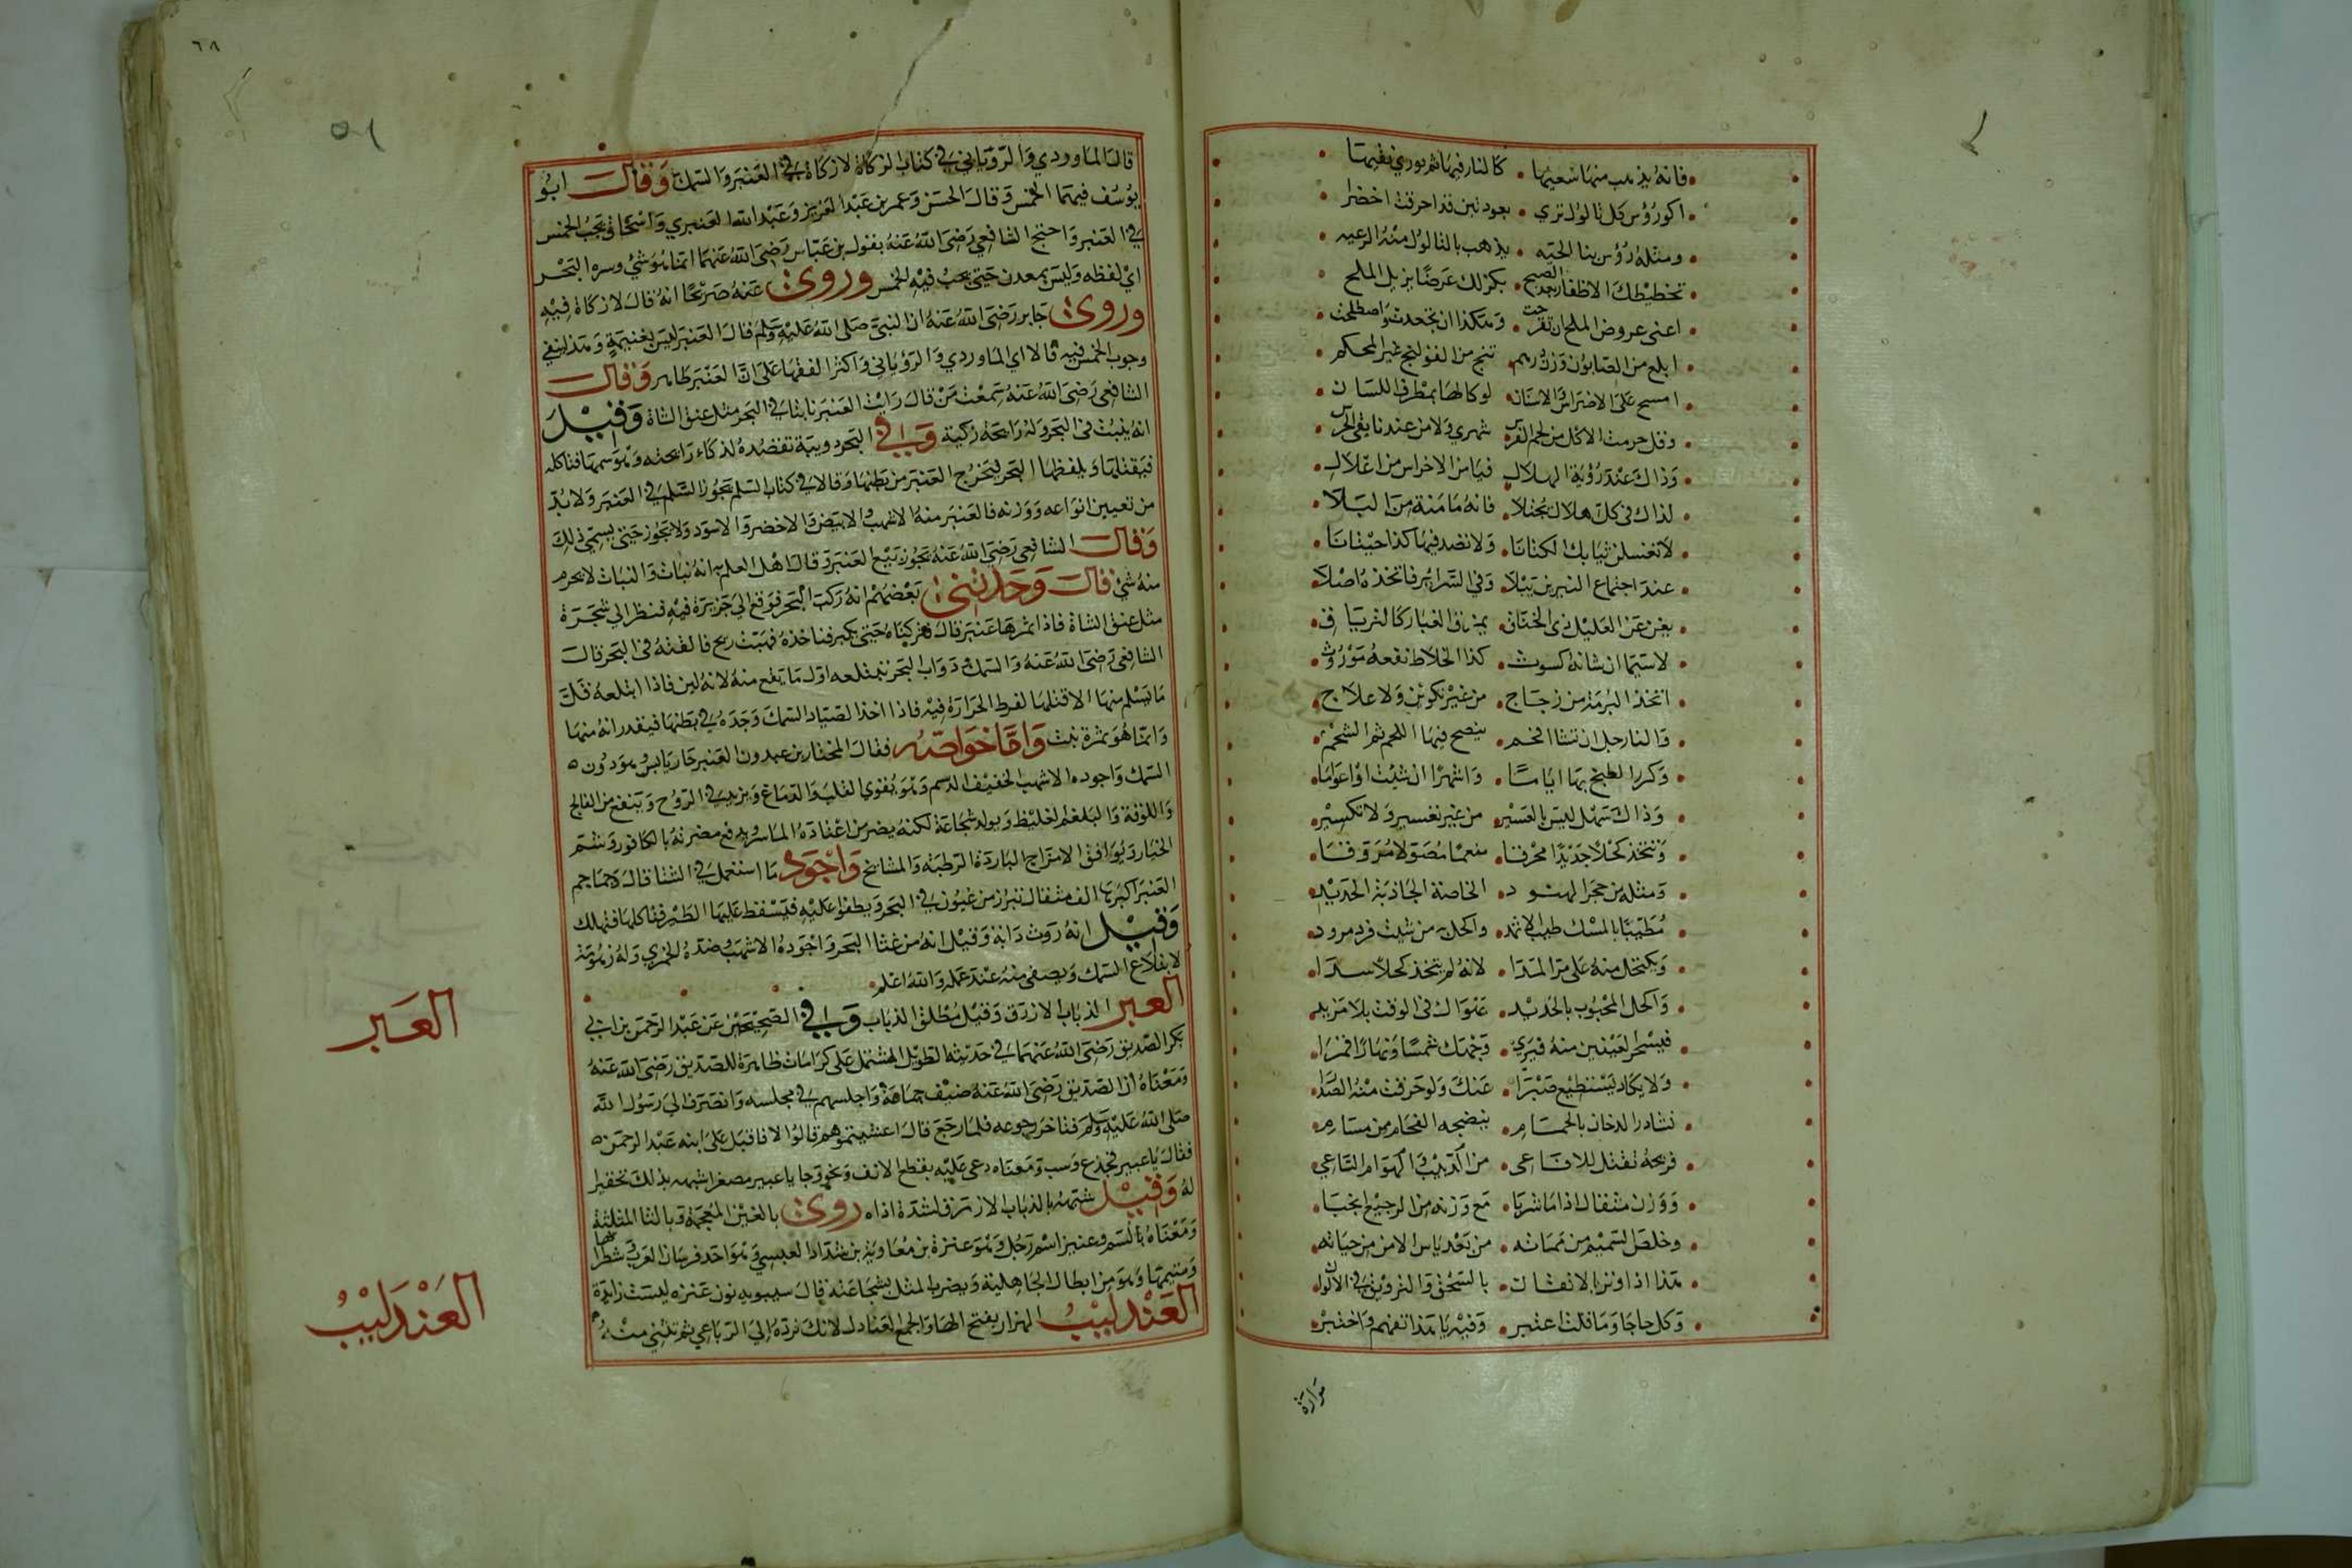 فانه يذهب منها شعبها كالنار فيها ثم يوري نفيها
اكو رؤس كل ثالول تري بعود تين قد احرقت اخضرا
ومثله رؤس بنا الحيه يذهب بالثالول منه الرعيه
تخطيطك الاظفار بعد الصبح بكزلك عرضا يزيل الملح
اعني عروض الملح ان تقرحت وهكذا ان تجعدت واصطلحت
ابلع من الصابون وزن درهم تنج من القولنج غير المحكم
امسح على الاضراس والاسنان لو كالها بمطرف اللسان
وقل حرمت الاكل من لحم الفرس شهري ولا من عندنا يبقي الحرس
وذاك عند رؤية الهلال فيا من الاخراس من اعلال
لذاك في كل هلال يجتلا فانه مامنة من البلا
لا تغسلن ثيابك الكتانا ولا تصد فيها كذا حيتانا
عند اجتماع النيرين تبلا وفي السراير فاتخذه اصلا
بغن عن العليل ذي الخناق يمزق الغبار كالترياق
لاسيما ان شانه كسوث كذا الخلاط نفعه موروث
اتخذ البرمة من زجاج من غير تكوين ولا علاج
والنار جل ان تشا الفحم ينضج فيها اللحم ثم الشحم
وكرر الطبخ بها اياما واشهرا ان شيت او اعواما
وذاك سهل ليس بالعسير من غير تغسير ولا تكسير
وتتخذ كحلا جديدا محرقا منعما مصولا مروقا
ومثله من حجر الهنود الخاصة الجاذبة الحديد
مطيبا بالمسك طيب الاثمد واكحل من شيت فرد مرود
ويكتحل منه على مر المدا لانه لم يتخذ كحلا سدا
واكحل المحبوب بالحديد عنواك في الوقت بلا مزيد
فيسحر العينين منه فيري وجهك شمسا ونهارا قمرا
ولا يكاد يستطيع صبرا عنك ولو حرقت منه الصدا
نشادر الدخان بالحمام ينضجه الفحام من مسام
فريحه تقتل للافاعي من الدبيب والهوام الساعي
ووزن مثقال اذا ما شربا مع وزنه من الرجيع انجبا
وخلص السميم من مماته من بعد ياس الامن من حياته
هذا اذا اوتر بالانفاث بالسحق والترويق في الاثواث
وكل ما جا وما قلت اعتبر وفيه يا هذا تفهم واختبر
مرارة
٦٨
قال الماوردي والروياني في كتاب الزكاة لا زكاة في العنبر والسمك وقال ابو
يوسف فيهما الخمس وقال الحسن وعمر بن عبد العزيز وعبد الله العنبري واسحاق يجب الخمس
في العنبر واحتج الشافعي رضي الله عنه بقول بن عباس رضي الله عنهما انما هو شئ دسره البحر
اي لفظه وليس بمعدن حتى يجب فيه الخمس وروي عنه صريحا انه قال لا زكاة فيه
وروي جابر رضي الله عنه ان النبي صلى الله عليه وسلم قال العنبر ليس بغنيمة وهذا ينفي
وجوب الخمس فيه قالا اي الماوردي والروياني واكثر الفقها على ان العنبر طاهر وقال
الشافعي رضي الله عنه سمعت من قال رايت العنبر نابتا في البحر مثل عنق الشاة وقيل
انه ينبت في البحر وله رايحة زكية وفي البحر دويبة تقصده لذكاء رايحته وهو سمها فتاكله
فيقتلها ويلفظها البحر ليخرج العنبر من بطنها وقالا في كتاب السلم يجوز السلم في العنبر ولا بد
من تعيين انواعه ووزنه فالعنبر منه الاشهب والابيض والاخضر والاسود ولا يجوز حتى يسمي ذلك
وقال الشافعي رضي الله عنه يجوز بيع العنبر وقال اهل العلم به انه نبات والنبات لا يحرم
منه شئ قال وحدثني بعضهم انه ركب البحر فوقع الى جزيرة فيه فنظر الي شجرة
مثل عنق الشاة فاذا ثمرها عنبر قال فتركناه حتى يكبر فناخذه فهبت ريح فالقته في البحر قال
الشافعي رضي الله عنه والسمك ودواب البحر تبتلعه اول ما يقع منه لانه لين فاذا ابتلعه قل
ما يسلم منها الا قتلها لفرط الحرارة فيه فاذا اخذ الصياد السمك وجده في بطنها فيقدر انه منها
وانما هو ثمرة نبت واما خواصه فقال المختار بن عبدون العنبر حار يابس وهو دون
المسك واجوده الاشهب الخفيف الدسم وهو يقوي القلب والدماغ ويزيد في الروح وينفع من الفالج
واللوقة والبلغم الغليظ ويولد شجاعة لكنه يضر من اعتاده الماسر ويدفع مضرته بالكافور وشم
الخيار ويوافق الامزاج الباردة الرطبة والمشايخ واجود ما استعمل في الشتا قال وجماجم
العنبر اكبرها الف مثقال تبرز من عيون في البحر ويطفوا عليه فيسقط عليها الطير فتاكلها فتهلك
وقيل انه روث دابة وقيل انه من غثا البحر واجوده الاشهب وضده الخمري وله زهومة
لابتلاع السمك ويصفي منه عند عمله والله اعلم
العبر الذباب الازرق وقيل مطلق الذباب وفي الصحيحين عن عبد الرحمن بن ابي
بكر الصديق رضي الله عنهما في حديثه الطويل المشتمل على كرامات ظاهرة للصديق رضي الله عنه
ومعناه ان الصديق رضي الله عنه ضيف جماعة واجلسهم في مجلسه وانصرف الى رسول الله
صلى الله عليه وسلم فتاخر رجوعه فلما رجع قال اعشيتموهم قالوا لا فاقبل على ابنه عبد الرحمن
فقال يا عبير فجدع وسب ومعناه دعي عليه بقطع الانف ونحوه وجا يا عبير مصغرا شبهه بذلك تحقيرا
له وقيل شبهه بالذباب الازرق لشدة اذاه روي بالغين المعجمة وبالثا المثلثة
ومعناه بالسم وعنبز اسم رجل وهو عنترة بن معاوية بن شداد العبسي وهو احد فرسان العرب وشجعانها
ومتيمها وهو من ابطال الجاهلية ويضرب المثل بشجاعته قال سيبويه نون عنتره ليست زايدة
العندليب الهزار بفتح الها والجمع العنادل لانك ترده الى الرباعي ثم تبني منه
العبر
العندليب